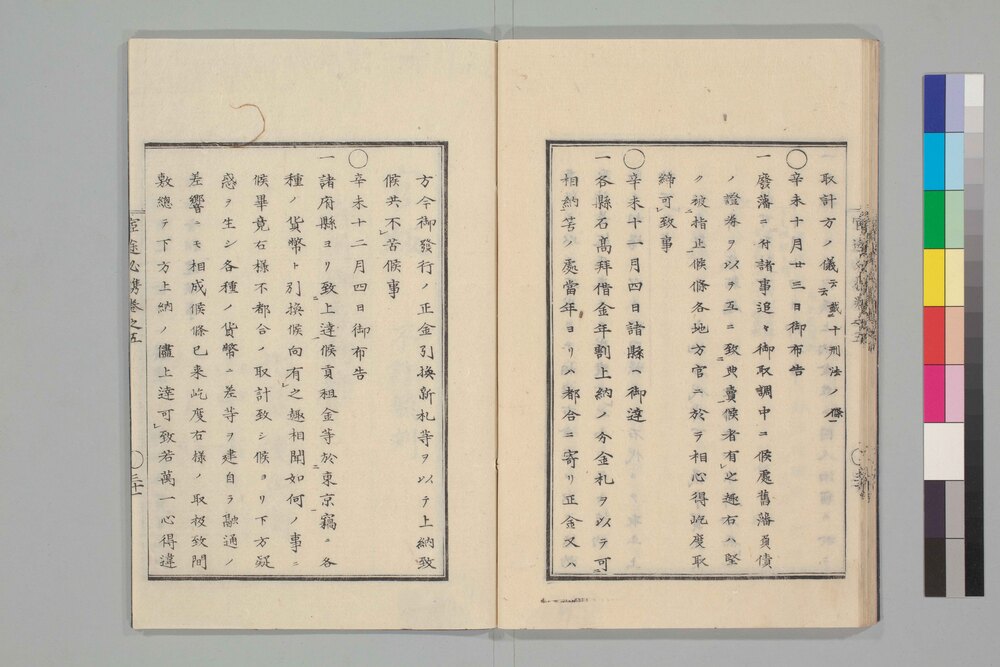 一取計方ノ儀ニ云々載テ刑法ノ條ニ
◯辛未十月廿三日御布告
一廢藩ニ付諸事追々御取調中ニ候處舊藩負債
ノ證券ヲ以テ互ニ致典賣候者有之趣右ハ堅
ク被指止候條各地方官ニ於テ相心得屹度取
締可致事
◯辛未十一月四日諸縣ヘ御達
一各縣石高拜借金年割上納ノ分金札ヲ以テ可
相納筈ノ處當年ヨリハ都合ニ寄リ正金又ハ
方今御發行ノ正金引換新札等ヲ以テ上納致
候共不苦候事
◯辛未十二月四日御布告
一諸府縣ヨリ致上達候貢租金等於東京竊ニ各
種ノ貨幣ト引換候向有之趣相聞如何ノ事ニ
候畢竟右樣不都合ノ取計致シ候ヨリ下方疑
惑ヲ生シ各種ノ貨幣ニ差等ヲ建自ラ融通ノ
差響ニモ相成候條已来屹度右樣ノ取扱致間
敷總テ下方上納ノ儘上達可致若萬一心得違
必携卷之五
三十一